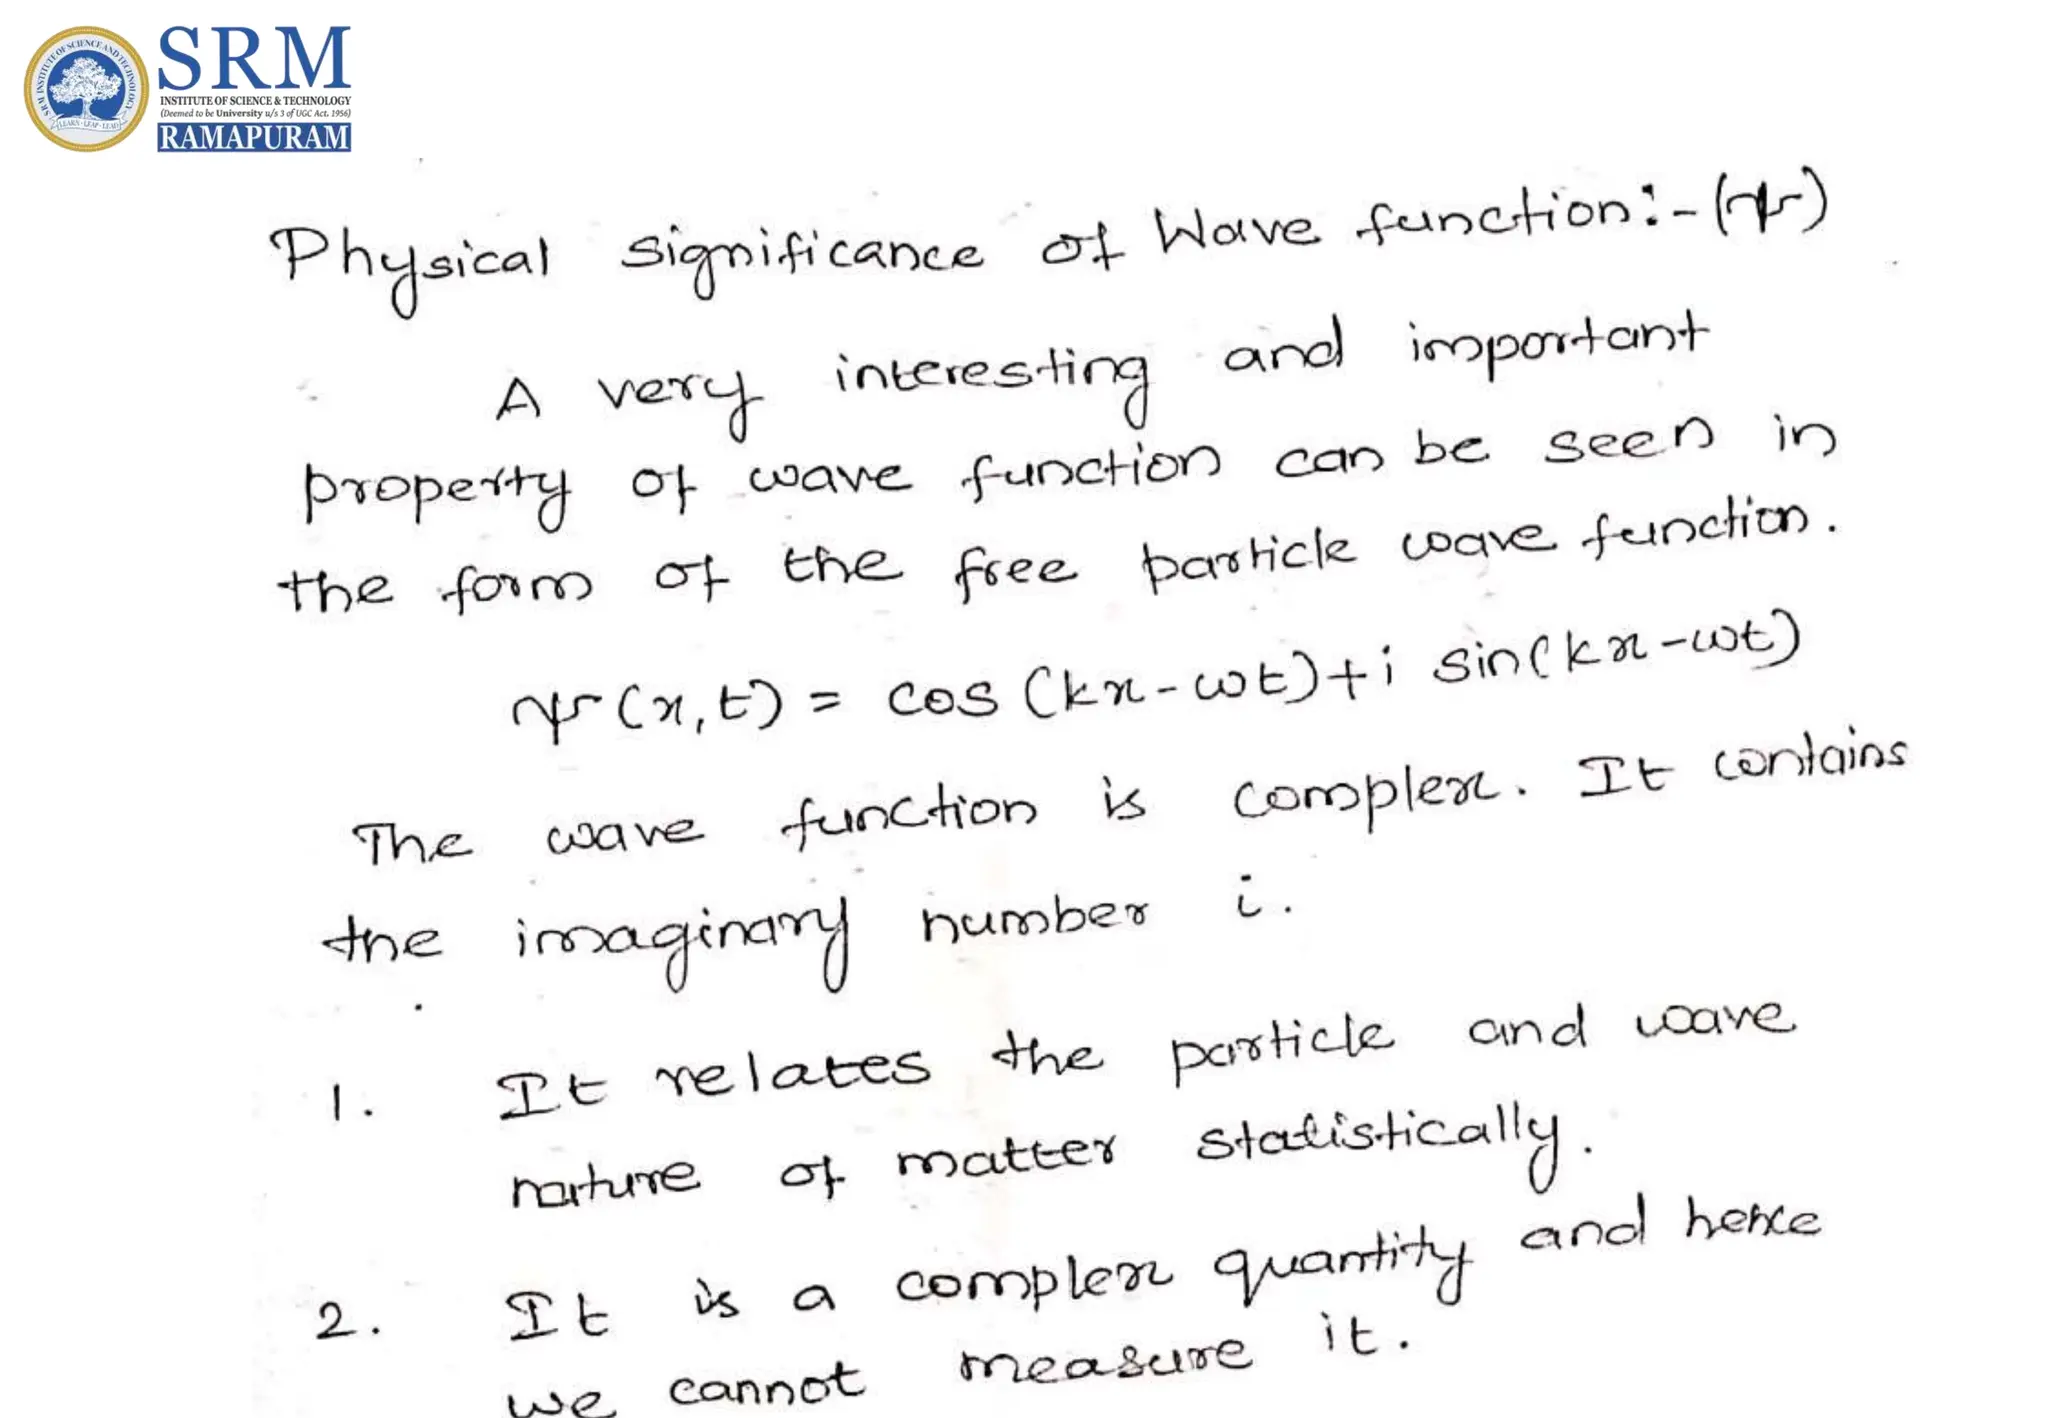 SRM
INSTITUTE OF SCIENCE & TECHNOLOGY
(Deemed to be University u/s 3 of UGC Act, 1956)
RAMAPURAM
SRM INSTITUTE OF SCIENCE AND TECHNOLOGY
LEARN - LEAP - LEAD
Physical significance of Wave function:- (ψ)
A very interesting and important
property of wave function can be seen in
the form of the free particle wave function.
ψ(x,t) = cos (kx-ωt)+i sin(kx-ωt)
The wave function is complex. It contains
the imaginary number i.
1. It relates the particle and wave
nature of matter statistically.
2. It is a complex quantity and hence
we cannot measure it.